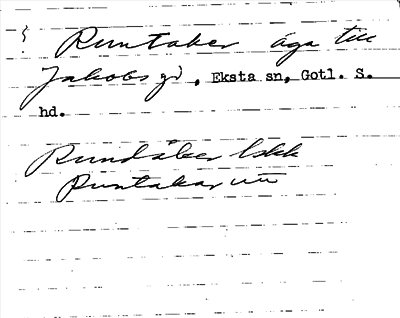 Runtaker äga till
Jakobs gd, Eksta sn, Gotl. S.
hd.
Rundåker Lskk
Runtakar uu